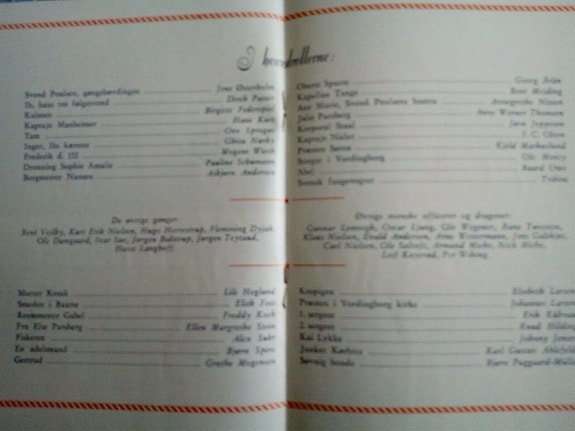 I hovedrollerne:
Svend Poulsen, gøngehøvdingen Jens Østerholm
Ib, hans tro følgesvend Dirch Passer
Kulsoen Birgitte Federspiel
Kaptajn Manheimer Hans Kurt
Tam Ove Sprogøe
Inger, Ibs kæreste Ghita Nørby
Frederik d. III Mogens Wieth
Dronning Sophie Amalie Pauline Schumann
Borgmester Nansen Asbjørn Andersen
Oberst Sparre Georg Årlin
Kapellan Tange Bent Mejding
Ane Marie, Svend Poulsens hustru Annegrethe Nissen
Julie Parsberg Anne Werner Thomsen
Korporal Jørn Jeppesen
Kaptajn J. C. Olsen
Præsten Søren Kjeld Markuslund
Borger i Vordingborg Ole Monty
Abel Baard Owe
Svensk fangevogter
De øvrige gønger:
Bent Vejlby, Kurt Erik Nielsen, Hugo Herrestrup, Flemming Dyjak,
Ole Damgaard, Ivar Søe, Jørgen Bidstrup, Jørgen Teytaud,
Hasse Langhoff.
Øvrige svenske officerer og dragoner:
Gunnar Lemvigh, Oscar Ljung, Ole Wegener, Rune Turesson,
Klaus Nielsen, Evald Andersen, Arne Westermann, Jens Galthjer,
Carl Nielsen, Ole Nick Miehe,
Leif Per Wiking.
Morten Kusk Lili Heglund
Smeden i Baarse Elith Foss
Rentemester Gabel Freddy Koch
Fru Else Parsberg Ellen Margrethe Stein
Fiskeren Alex Suhr
En adelsmand Bjørn Spiro
Gertrud Grethe Mogensen
Kropigen Elsebeth Larsen
Præsten i Vordingborg kirke Johannes Larsen
1. sergent Erik Kühnau
2. sergent Knud Hilding
Kai Lykke Johnny Jensen
Junker Karl Gustav Ahlefeldt
bonde Bjørn Puggaard-Müller